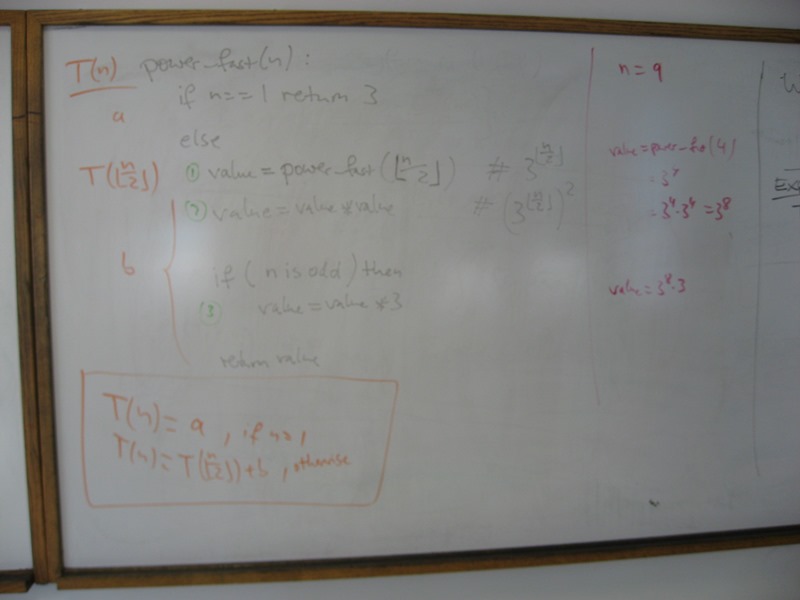 T(n) power_fast(n):
a if n==1 return 3
else
T(⌊n/2⌋) ① value = power_fast(⌊n/2⌋) # 3^⌊n/2⌋
② value = value * value # (3^⌊n/2⌋)^2
b if (n is odd) then
③ value = value * 3
return value
T(n) = a, if n=1,
T(n) = T(⌊n/2⌋)+b, otherwise
n=9
value = power_fast(4)
= 3^4
= 3^4·3^4 = 3^8
value = 3^8·3